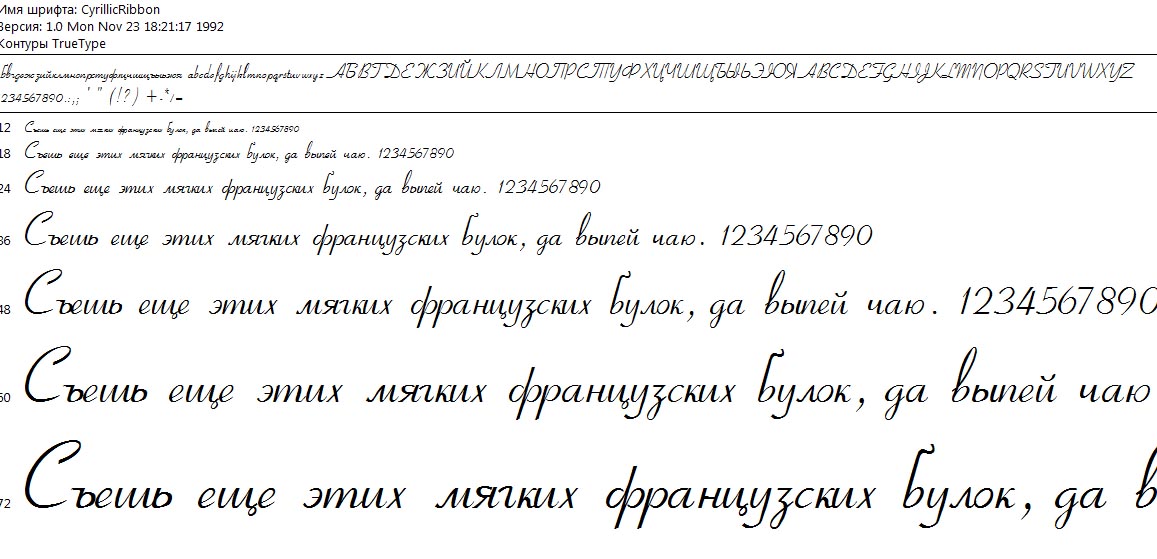 Имя шрифта: CyrillicRibbon
Версия: 1.0 Mon Nov 23 18:21:17 1992
Контуры TrueType
бвгдежзийклмнопрстуфхцчшщъыьэюя abcdefghijklmnopqrstuvwxyz АБВГДЕЖЗИЙКЛМНОПРСТУФХЦЧШЩЪЫЬЭЮЯ ABCDEFGHIJKLMNOPQRSTUVWXYZ
1234567890.:,; ' " (!?) +-*/=
12 Съешь еще этих мягких французских булок, да выпей чаю. 1234567890
18 Съешь еще этих мягких французских булок, да выпей чаю. 1234567890
24 Съешь еще этих мягких французских булок, да выпей чаю. 1234567890
36 Съешь еще этих мягких французских булок, да выпей чаю. 1234567890
48 Съешь еще этих мягких французских булок, да выпей чаю. 1234567890
60 Съешь еще этих мягких французских булок, да выпей чаю
72 Съешь еще этих мягких французских булок, да в